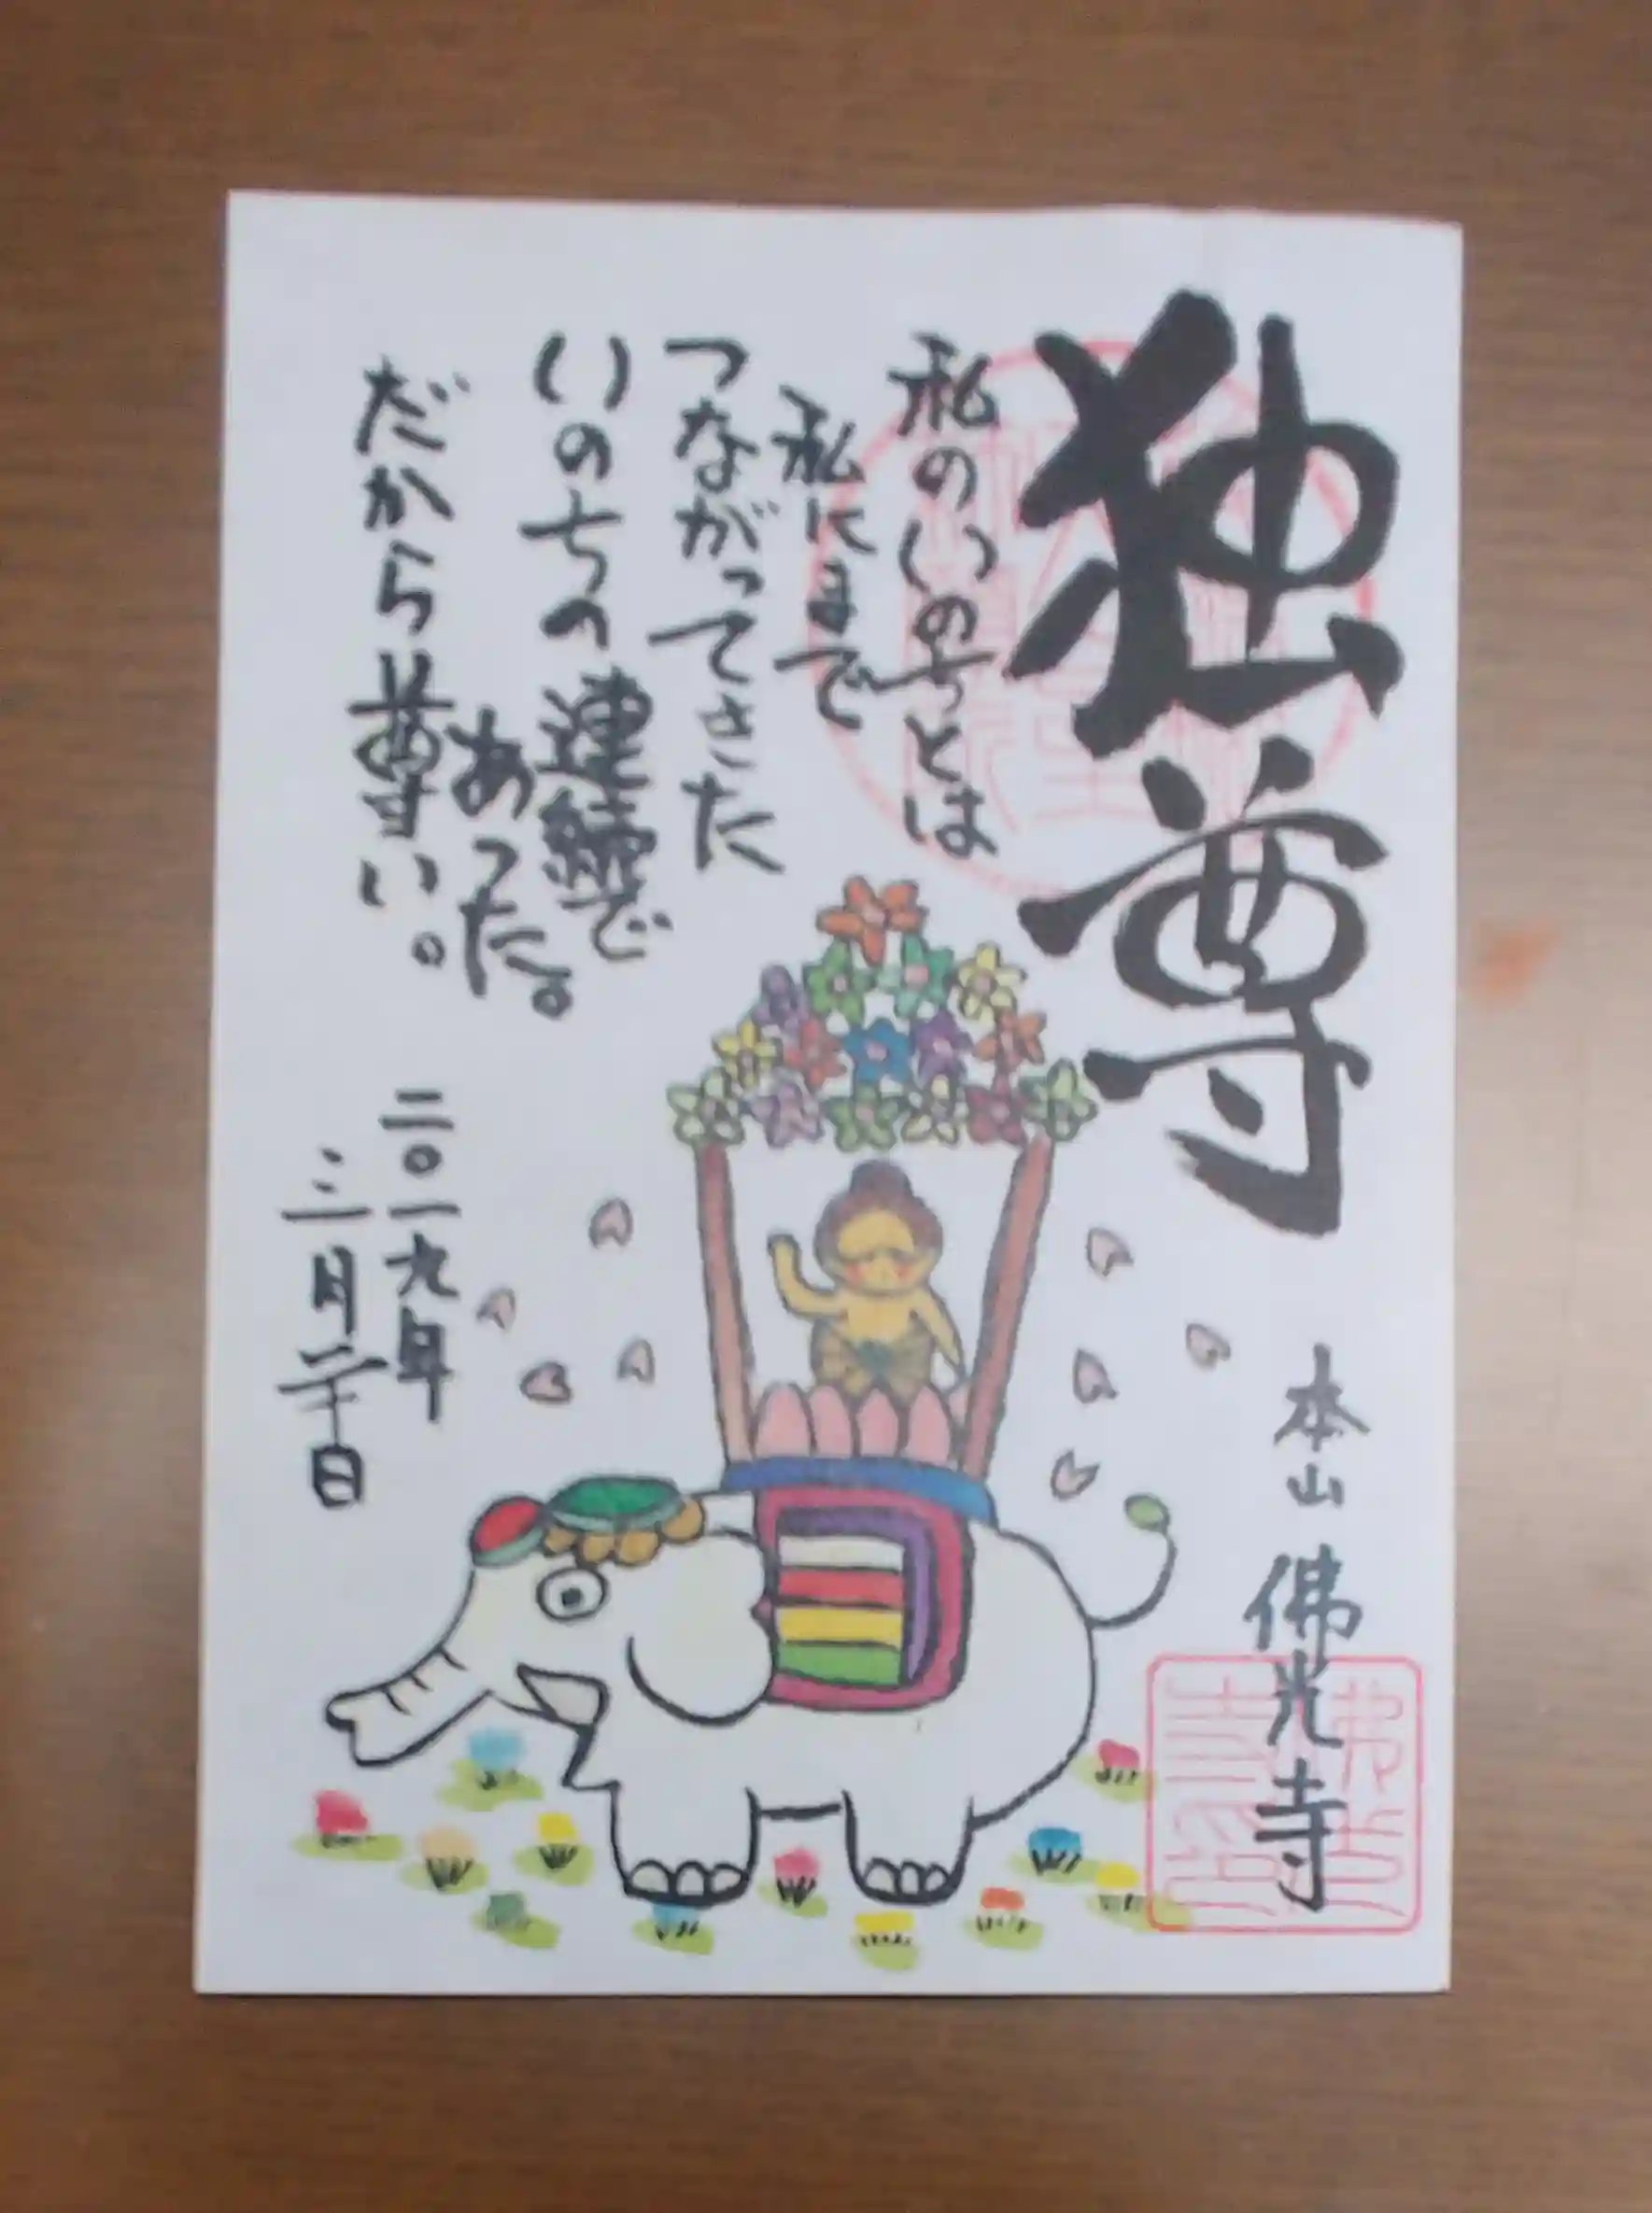 独尊
私のいのちとは
私にまで
つながってきた
いのちの連続で
あった。
だから尊い。
二〇一九年
三月二十日
本山 佛光寺